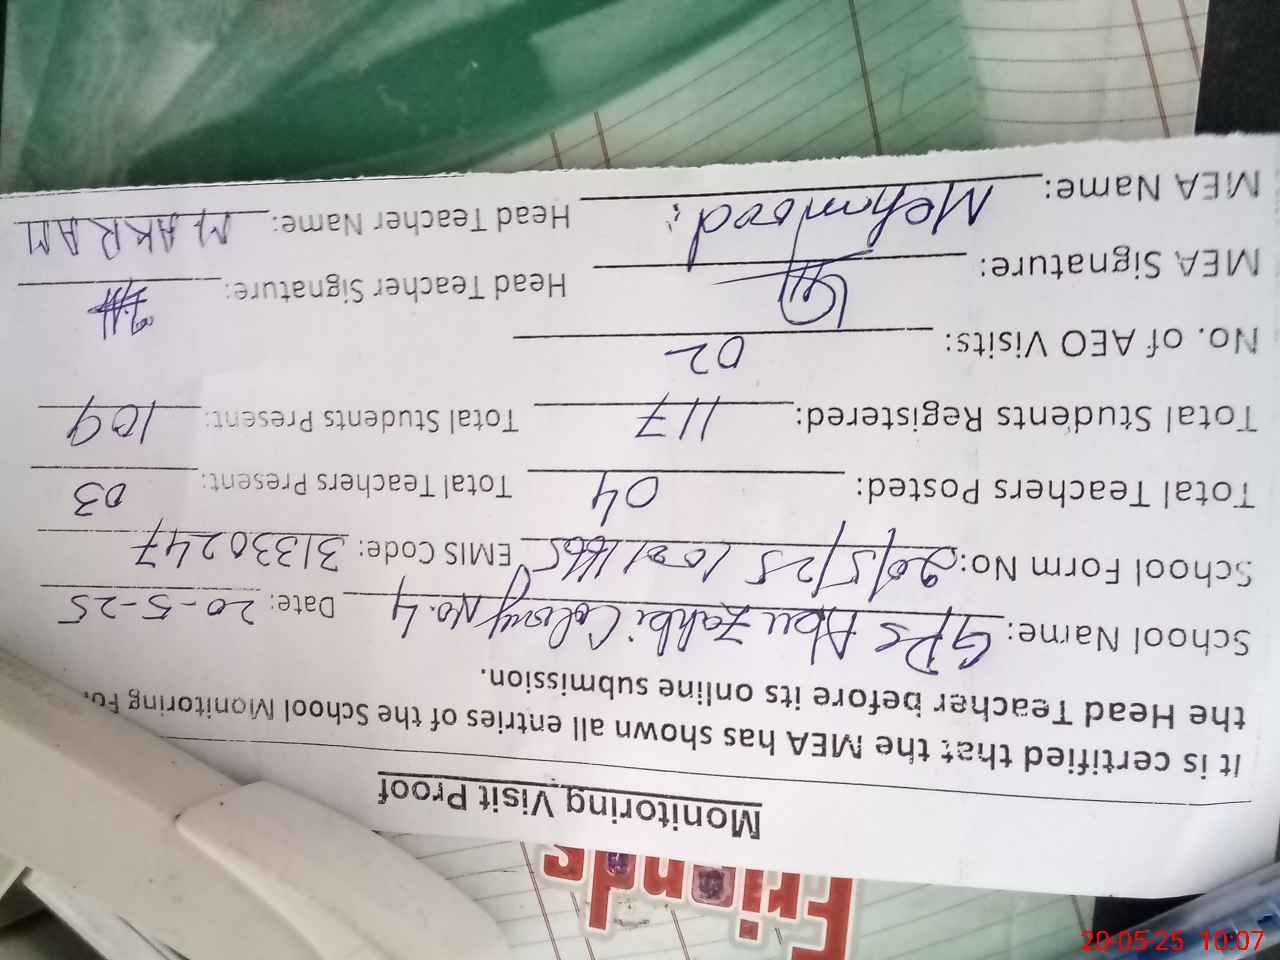 Friends
Monitoring Visit Proof
It is certified that the MEA has shown all entries of the School Monitoring
the Head Teacher before its online submission.
School Name: GPS Abu Zahbi Colony No.4 Date: 20-5-25
School Form No: EMIS Code: 31330247
Total Teachers Posted: 04 Total Teachers Present: 03
Total Students Registered: 117 Total Students Present: 109
No. of AEO Visits: 02
MEA Signature: Head Teacher Signature:
MEA Name: Mehmood Head Teacher Name: M. AKRAM
20-05-25 10:07